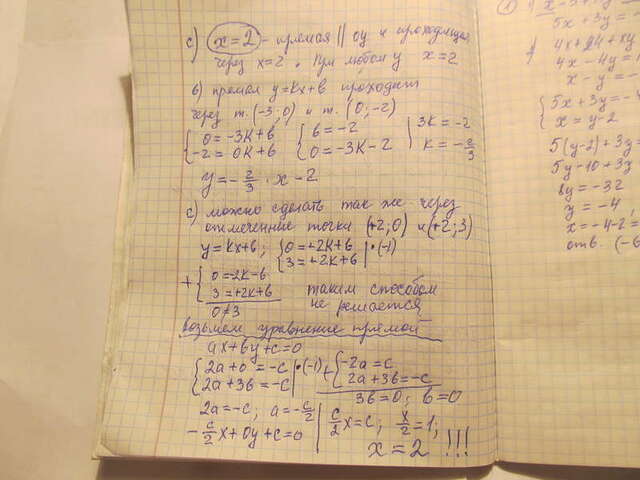 c) x=2 - прямая || оу и проходящая
через x=2. При любом y x=2
в) прямая y=kx+b проходит
через т. (-3;0) и т. (0;-2)
{0=-3k+b {b=-2 | 3k=-2
{-2=0k+b {0=-3k-2 | k=-2/3
y=-2/3·x-2
c) можно сделать так же через
отмеченные точки (+2;0) и (+2;3)
y=kx+b; {0=+2k+b |·(-1)
{3=+2k+b
+{0=-2k-b
{3=+2k+b таким способом
0≠3 не решается
возьмем уравнение прямой
ax+by+c=0
{2a+0=-c |·(-1) +{-2a=c
{2a+3b=-c {2a+3b=-c
3b=0; b=0
2a=-c; a=-c/2 | c/2x=c; x/2=1;
-c/2x+0y+c=0 | x=2 !!!
5x+3y=-
4x-4y=
x-y=-
{5x+3y=-4
{x=y-2
5(y-2)+3y=
5y-10+3y
8y=-32
y=-4
x=-4-2=
отв. (-6